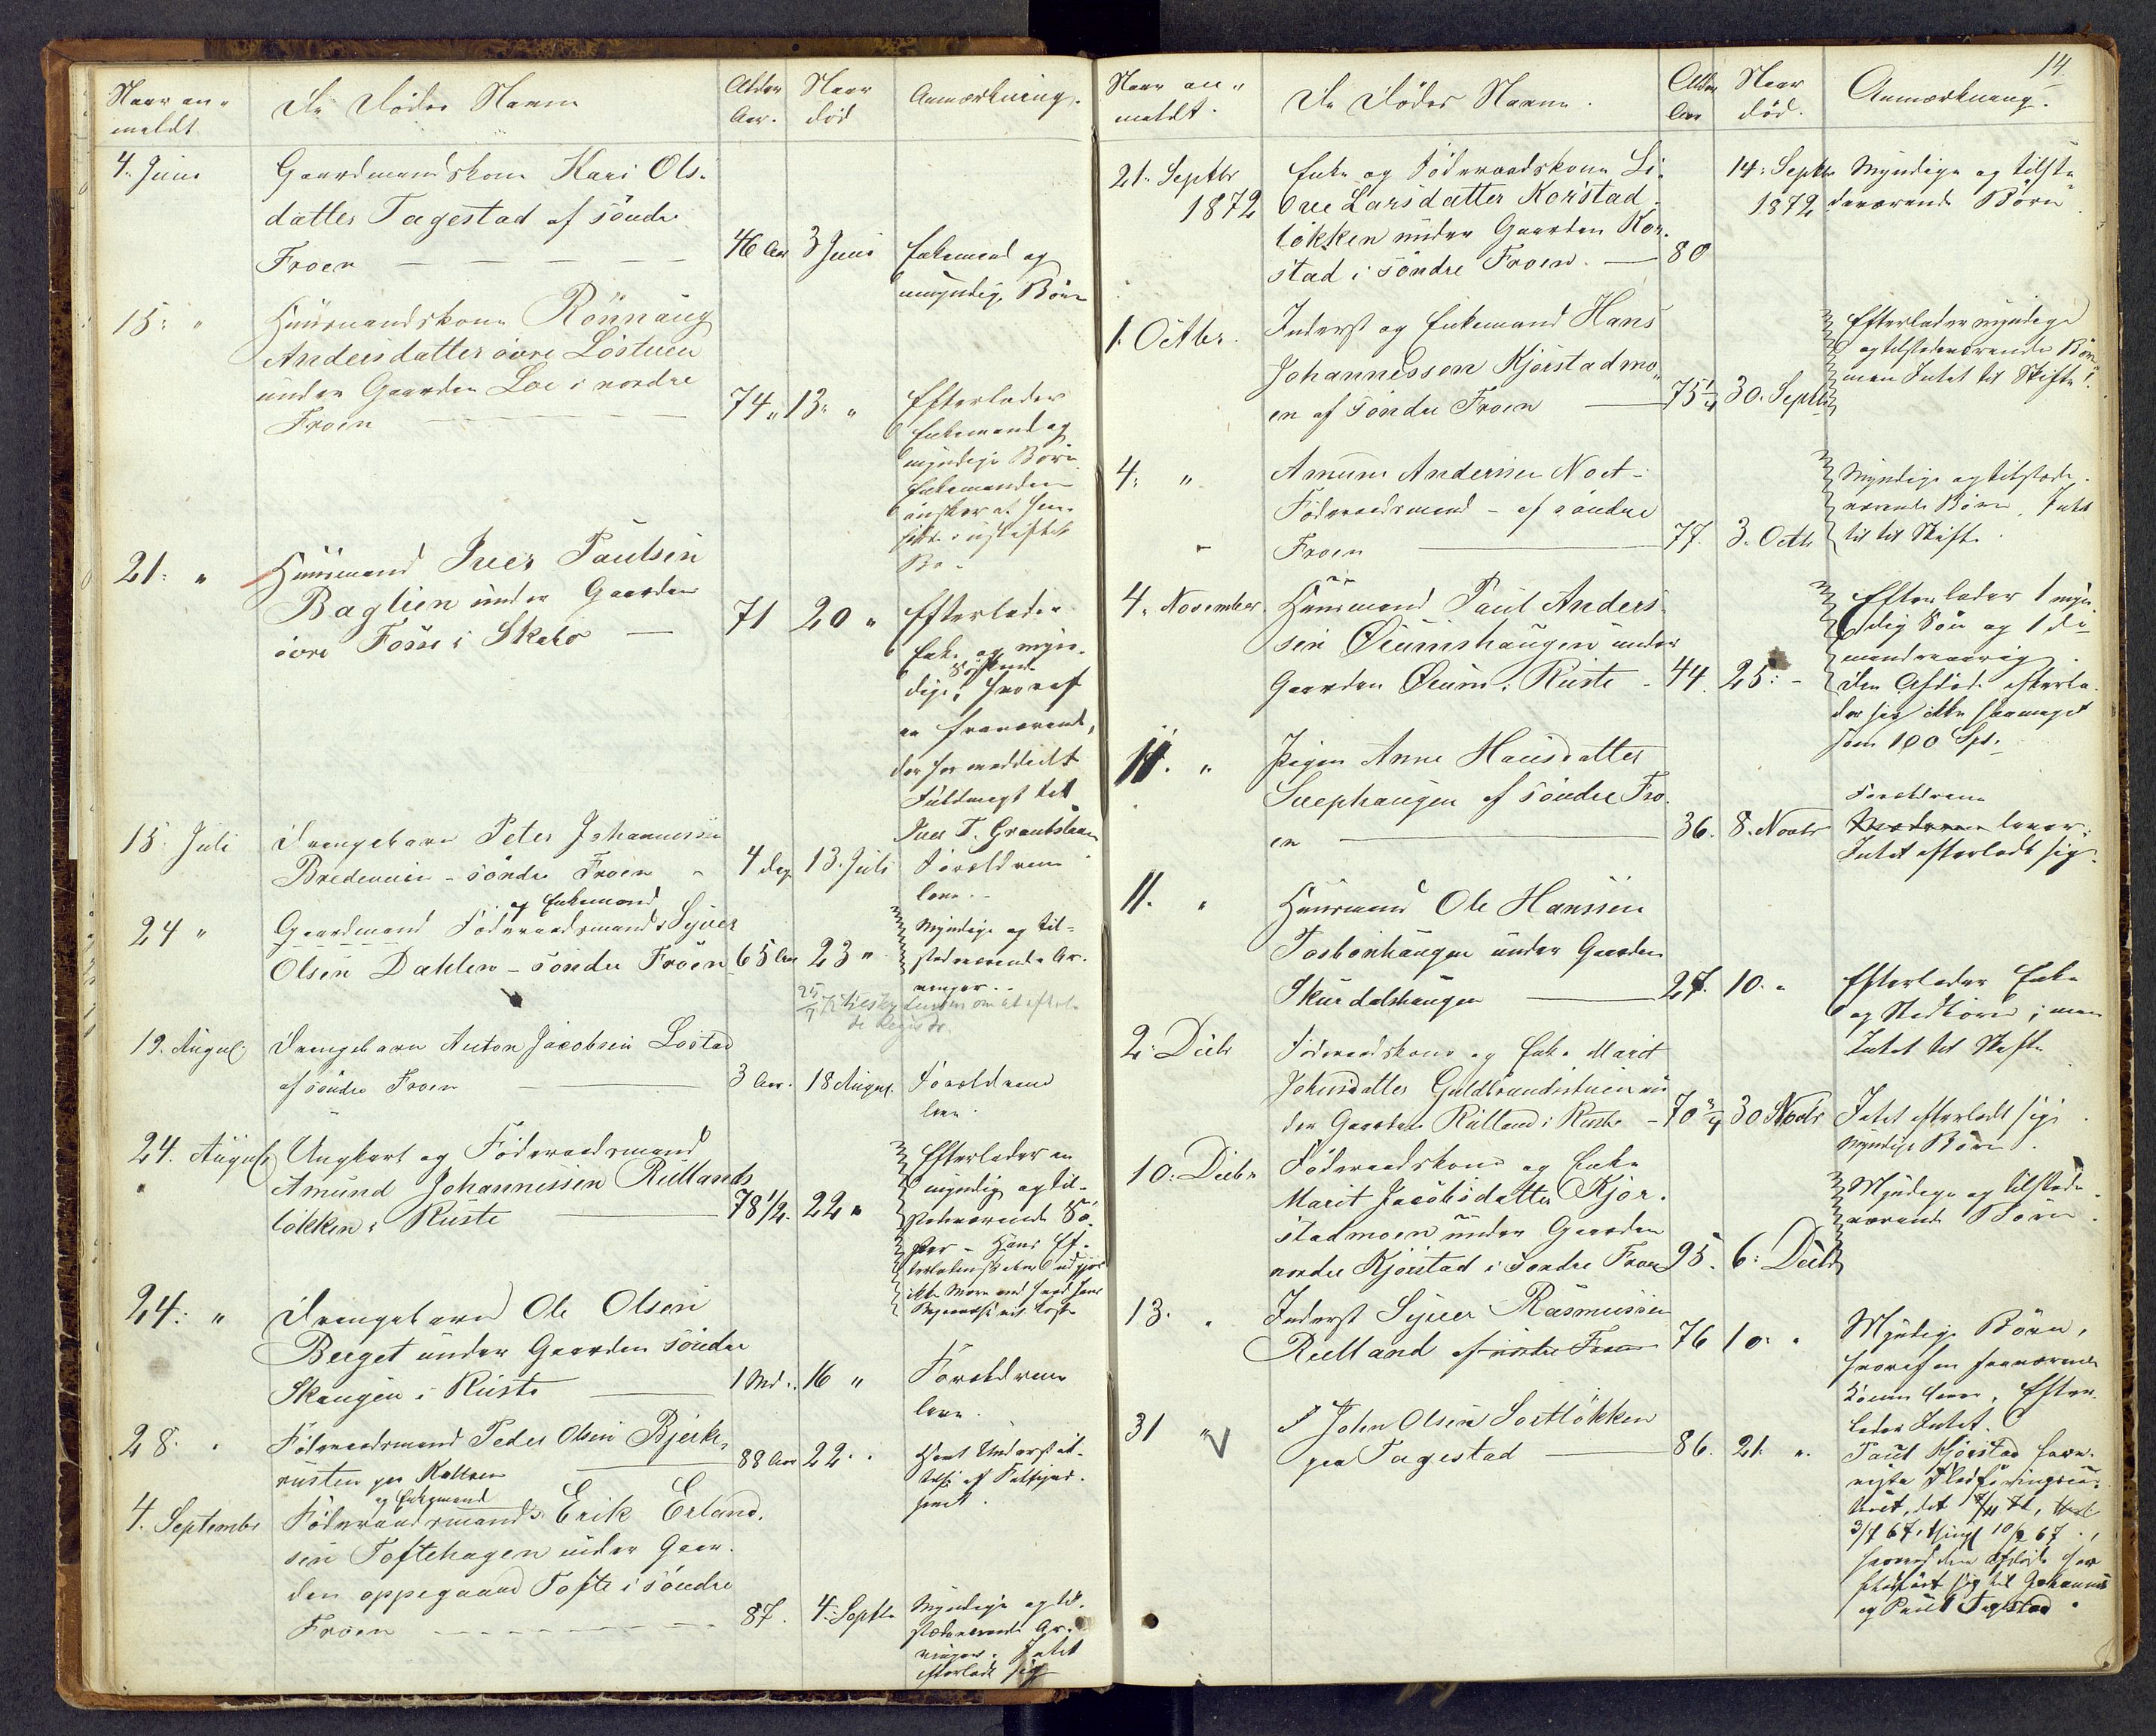 Naar an-
meldt
De Dødes Navne
Alder
Aar.
Naar
död
Anmærkning.
4. Juni
Gaardmandskone Kari Ols-
datter Tagestad af söndre
Froen
46 Aar
3 Juni
Enkemand og
umyndige Börn
15. "
Huusmandskone Rönnaug
Andersdatter övre Löstuen
under Gaarden Loe i nordre
Froen
74 "
13. "
Efterlader
Enkemand og
myndige Börn.
Enkemanden
önsker at hen-
sidde i uskiftet
Bo.
21. "
Huusmand Iver Paulsen
Baglien under Gaarden
övre Fosse i Skabo
71
20 "
Efterlader
Enke og myn-
dige Söskende, hvoraf
en fraværende,
der har meddelt
Fuldmagt til
Iver T. Graubstuen
15 Juli
Drengebarn Peter Johannessen
Bredeveien - söndre Froen
4 Dage
13. Juli
Forældrene
leve.
24 "
og Enkemand
Gaardmand Föderaadsmand Syver
Olsen Dahlen - söndre Froen
65 Aar
23 "
Myndige og til-
stedeværende Ar-
vinger.
19. August
Drengebarn Anton Jacobsen Lostad
af söndre Froen
3 Aar.
18 August
Forældrene
leve.
24. August
Ungkarl og Föderaadsmand
Amund Johannessen Rullands
lökken i Ruste
78 1/2.
22 "
Efterlader en
myndig og til-
stedeværende Sö-
ster - Hans Ef-
terladenskaber udgjör
ikke mere end hvad hans
Begravelse vil koste
24. "
Drengebarn Ole Olsen
Berget under Gaarden söndre
Skaugen i Ruste
1 Md.
16 "
Forældrene
leve.
28. "
Föderaadsmand Peder Olsen Bjerke
rusten
88 Aar
22. "
4. Septembr
og Enkemand
Föderaadsmand Erik Erland-
sen Toftehagen under Gaar-
den oppegaard Tofte i söndre
Froen
87.
4. Septbr
Myndige og til-
stedeværende Ar-
vinger. Intet
efterladt sig
14
Naar an-
meldt.
De Dödes Navne.
Alder
Aar
Naar
död.
Anmærkning.
21. Septbr
1872
Enke og Föderaadskone Li-
Ove Larsdatter Korstad-
lökken under Gaarden Kor-
stad i söndre Froen.
80
14. Septbr
1872
Myndige og tilste-
deværende Börn
1. Octbr.
Inderst og Enkemand Hans
Johannessen Kjorstadmo-
en af söndre Froen
75 1/4
30. Septbr
Efterlader myndige
og tilstedeværende Börn
men Intet til Skifte.
4. "
Amund Andersen Noet -
Föderaadsmand - af söndre
Froen
77.
3. Octbr
Myndige og tilstede-
værende Börn. Intet
til Skifte.
4. November.
Huusmand Paul Anders-
sen Øiumshaugen under
Gaarden Øium i Ruste
44.
25. "
Efterlader 1 myn-
dig Sön og 1 do
mindreaarig.
Den Afdöde efterla-
der sig ikke saameget
som 100 Spd.
11. "
Pigen Anne Hansdatter
Svephaugen af söndre Fro-
en
36.
8. Novbr
Forældrene
Moderen lever.
Intet efterladt sig.
11. "
Huusmand Ole Hanssen
Torbonhaugen under Gaarden
Skurdalshaugen
27.
10. "
Efterlader Enke
og Stedbörn; men
Intet til Skifte
2. Decbr
Föderaadskone og Enke Marit
Johnsdatter Guldbrandsstuen un-
der Gaarden Rulland i Ruste
70 3/4
30 Novbr
Intet efterladt sig.
Myndige Börn.
10. Decbr
Föderaadskone og Enke
Marit Jacobsdatter Kjor-
stadmoen under Gaarden
nordre Kjorstad i söndre Froen
95.
6. Decbr
Myndige og tilstede-
værende Börn.
13. "
Inderst Syver Rasmussen
Rulland af söndre Froen
76
10. "
Myndige Börn,
hvoraf en fraværende
Konen lever. Efter-
lader Intet.
31 "
John Olsen Sortlökken
paa Tagestad
86.
21. "
Paul Kjorstad frem-
viste
3/7 67, thingl 10/2 67,
hvorved den Afdöde har
flödfört sig til Johannes
og Paul Tagestad.